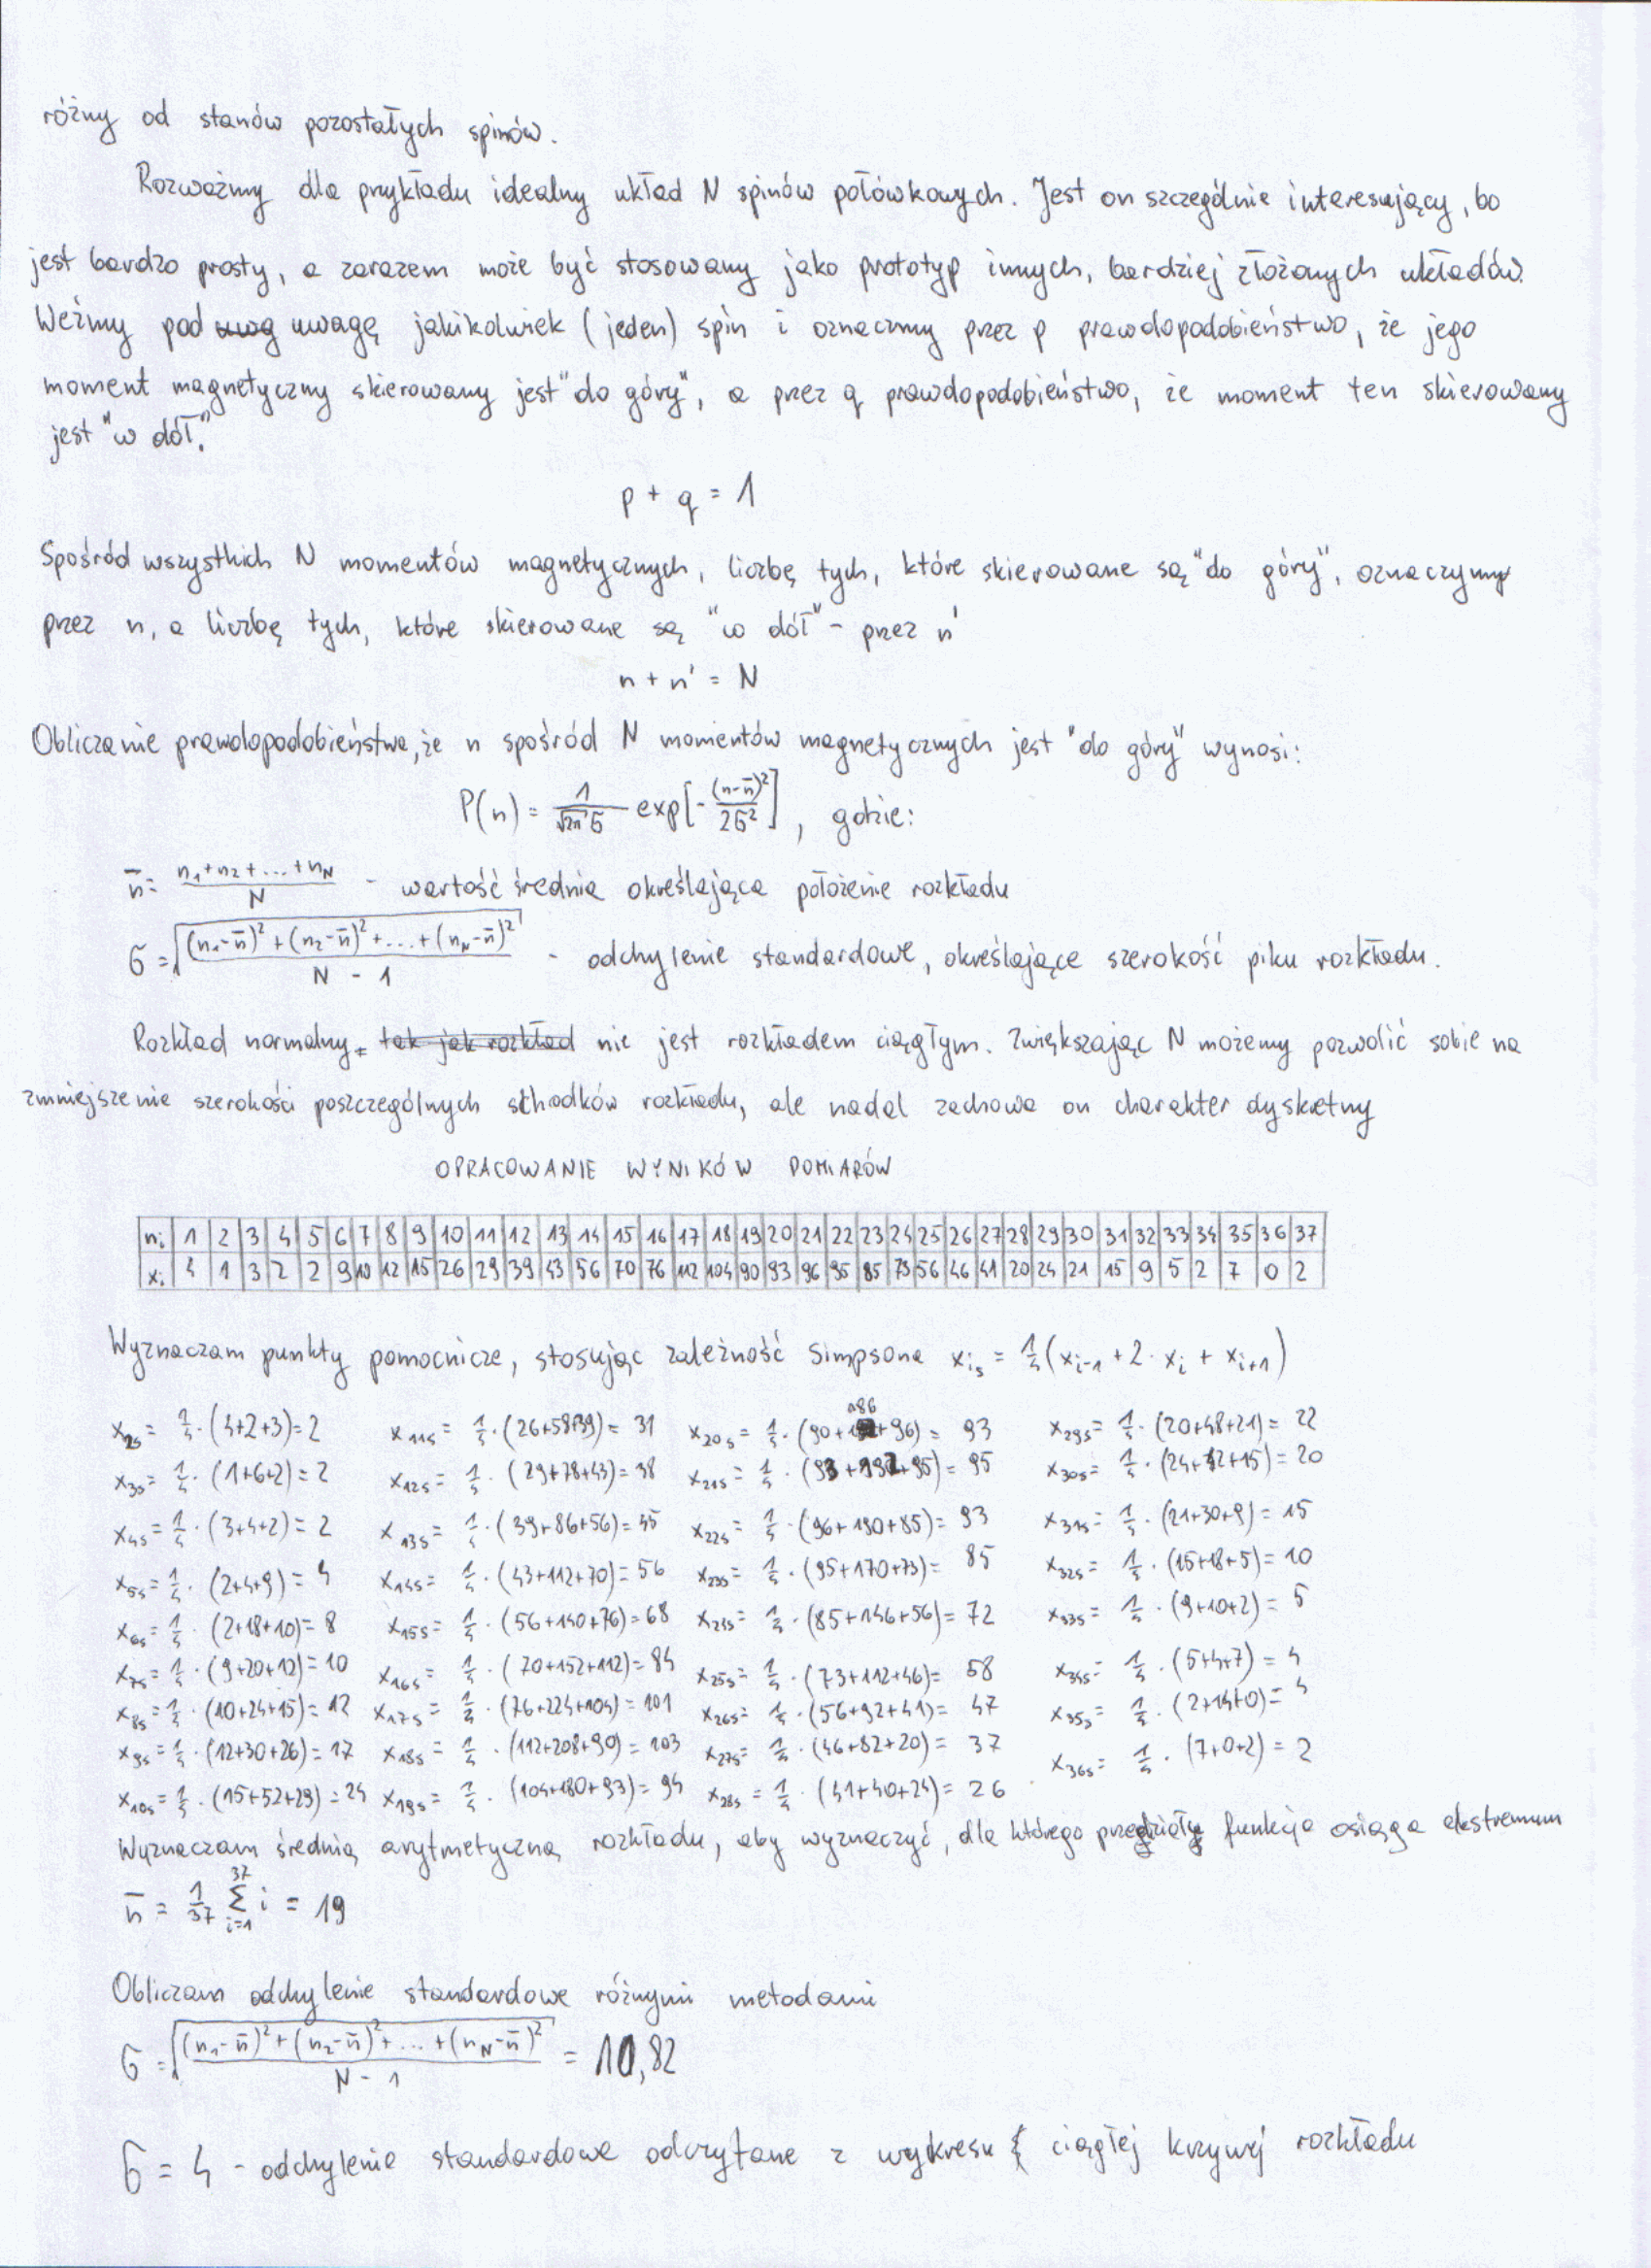 różny od stanów pozostałych spinów.
Rozważmy dla przykładu idealny układ N spinów połówkowych. Jest on szczególnie interesujący, bo
jest bardzo prosty, a zarazem może być stosowany jako prototyp innych, bardziej złożonych układów.
Weźmy pod uwagę jakikolwiek (jeden) spin i oznaczmy przez p prawdopodobieństwo, że jego
moment magnetyczny skierowany jest "do góry", a przez q prawdopodobieństwo, że moment ten skierowany
jest "w dół".
p + q = 1
Spośród wszystkich N momentów magnetycznych, liczbę tych, które skierowane są "do góry", oznaczymy
przez n, a liczbę tych, które skierowane są "w dół" - przez n'
n + n' = N
Obliczanie prawdopodobieństwa, że n spośród N momentów magnetycznych jest "do góry" wynosi:
P(n) = 1/(√2π σ) exp[-(n-n̄)²/2σ²], gdzie:
n̄ = (n₁+n₂+...+n_N)/N - wartość średnia określająca położenie rozkładu
σ = √((n₁-n̄)²+(n₂-n̄)²+...+(n_N-n̄)²)/(N-1) - odchylenie standardowe, określające szerokość piku rozkładu.
Rozkład normalny nie jest rozkładem ciągłym. Zwiększając N możemy pozwolić sobie na
zmniejszenie szerokości poszczególnych schodków rozkładu, ale nadal zachowa on charakter dyskretny
OPRACOWANIE WYNIKÓW POMIARÓW
nᵢ 1 2 3 4 5 6 7 8 9 10 11 12 13 14 15 16 17 18 19 20 21 22 23 24 25 26 27 28 29 30 31 32 33 34 35 36 37
xᵢ 4 1 3 2 2 9 10 12 15 26 29 39 43 56 70 76 112 104 90 93 96 95 85 73 56 46 41 20 24 21 15 9 5 2 7 0 2
Wyznaczam punkty pomocnicze, stosując zależność Simpsona xᵢₛ = 1/4 (xᵢ₋₁ + 2·xᵢ + xᵢ₊₁)
x₂ₛ = 1/4·(4+2+3) = 2 x₁₁ₛ = 1/4·(26+58+39) = 31 x₂₀ₛ = 1/4·(90+186+96) = 93 x₂₉ₛ = 1/4·(20+48+21) = 22
x₃ₛ = 1/4·(1+6+2) = 2 x₁₂ₛ = 1/4·(29+78+43) = 38 x₂₁ₛ = 1/4·(93+192+95) = 95 x₃₀ₛ = 1/4·(24+42+15) = 20
x₄ₛ = 1/4·(3+4+2) = 2 x₁₃ₛ = 1/4·(39+86+56) = 45 x₂₂ₛ = 1/4·(96+190+85) = 93 x₃₁ₛ = 1/4·(21+30+9) = 15
x₅ₛ = 1/4·(2+4+9) = 4 x₁₄ₛ = 1/4·(43+112+70) = 56 x₂₃ₛ = 1/4·(95+170+73) = 85 x₃₂ₛ = 1/4·(15+18+5) = 10
x₆ₛ = 1/4·(2+18+10) = 8 x₁₅ₛ = 1/4·(56+140+76) = 68 x₂₄ₛ = 1/4·(85+146+56) = 72 x₃₃ₛ = 1/4·(9+10+2) = 5
x₇ₛ = 1/4·(9+20+12) = 10 x₁₆ₛ = 1/4·(70+152+112) = 84 x₂₅ₛ = 1/4·(73+112+46) = 58 x₃₄ₛ = 1/4·(5+4+7) = 4
x₈ₛ = 1/4·(10+24+15) = 12 x₁₇ₛ = 1/4·(76+224+104) = 101 x₂₆ₛ = 1/4·(56+92+41) = 47 x₃₅ₛ = 1/4·(2+14+0) = 4
x₉ₛ = 1/4·(12+30+26) = 17 x₁₈ₛ = 1/4·(112+208+90) = 103 x₂₇ₛ = 1/4·(46+82+20) = 37 x₃₆ₛ = 1/4·(7+0+2) = 2
x₁₀ₛ = 1/4·(15+52+29) = 24 x₁₉ₛ = 1/4·(104+180+93) = 94 x₂₈ₛ = 1/4·(41+40+24) = 26
Wyznaczam średnią arytmetyczną rozkładu, aby wyznaczyć, dla którego funkcja osiąga ekstremum
n̄ = 1/37 Σ_{i=1}^{37} i = 19
Obliczam odchylenie standardowe różnymi metodami
σ = √((n₁-n̄)²+(n₂-n̄)²+...+(n_N-n̄)²)/(N-1) = 10,82
σ = 4 - odchylenie standardowe odczytane z wykresu ciągłej krzywej rozkładu